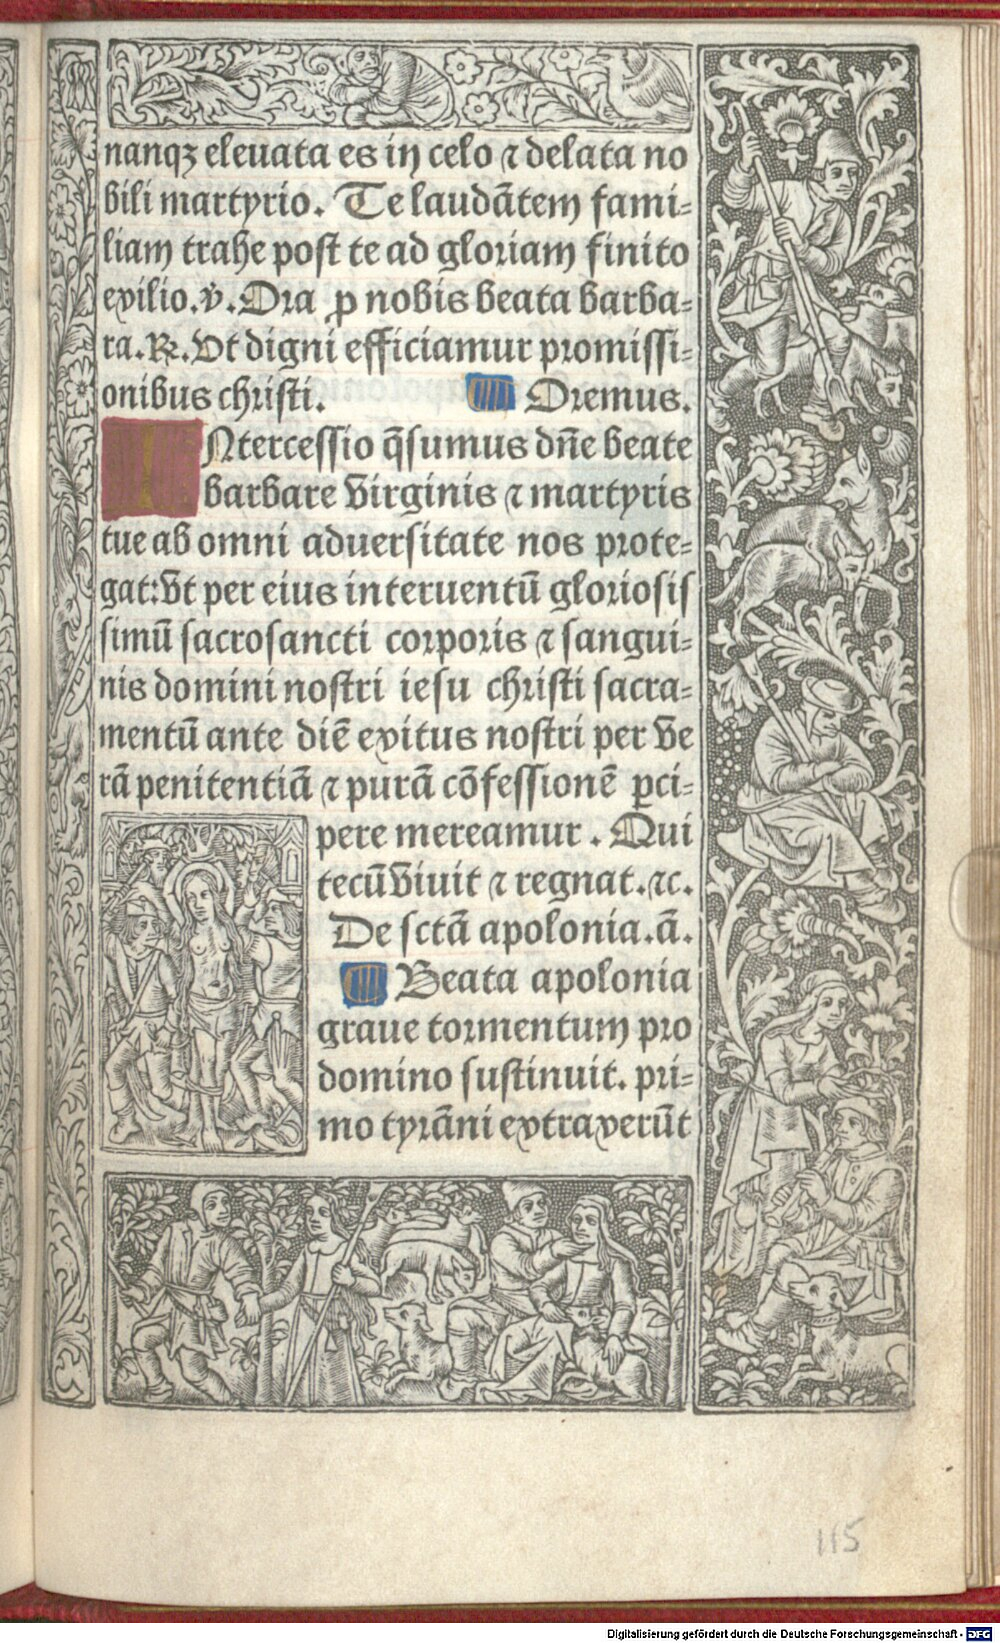 nanqꝫ eleuata es in celo ⁊ delata no
bili martyrio. Te laudãtem fami⸗
liam trahe post te ad gloriam finito
exilio.v̓.Ora ꝓ nobis beata barba⸗
ra.℟.Vt digni efficiamur promissi⸗
onibus christi. Oremus.
INtercessio q̃sumus dñe beate
barbare virginis ⁊ martyris
tue ab omni aduersitate nos prote⸗
gat:vt per eius interuentũ gloriosis
simũ sacrosancti corporis ⁊ sangui⸗
nis domini nostri iesu christi sacra⸗
mentũ ante diẽ exitus nostri per ve
rã penitentiã ⁊ purã cõfessionẽ ꝑci⸗
pere mereamur. Qui
tecũ viuit ⁊ regnat.⁊c.
De sctã apolonia.ã.
Beata apolonia
graue tormentum pro
domino sustinuit. pri⸗
mo tyrãni extraxerũt
115
Digitalisierung gefördert durch die Deutsche Forschungsgemeinschaft - DFG